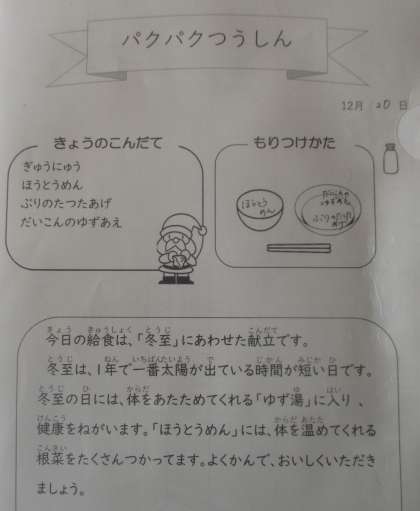 パクパクつうしん
12月 20日
きょうのこんだて
ぎゅうにゅう
ほうとうめん
ぶりのたつたあげ
だいこんのゆずあえ
もりつけかた
ほうとう
めん
だいこんの
ゆずあえ
ぶりのたつた
あげ
今日の給食は、「冬至」にあわせた献立です。
冬至は、1年で一番太陽が出ている時間が短い日です。
冬至の日には、体をあたためてくれる「ゆず湯」に入り、
健康をねがいます。「ほうとうめん」には、体を温めてくれる
根菜をたくさんつかってます。よくかんで、おいしくいただき
ましょう。